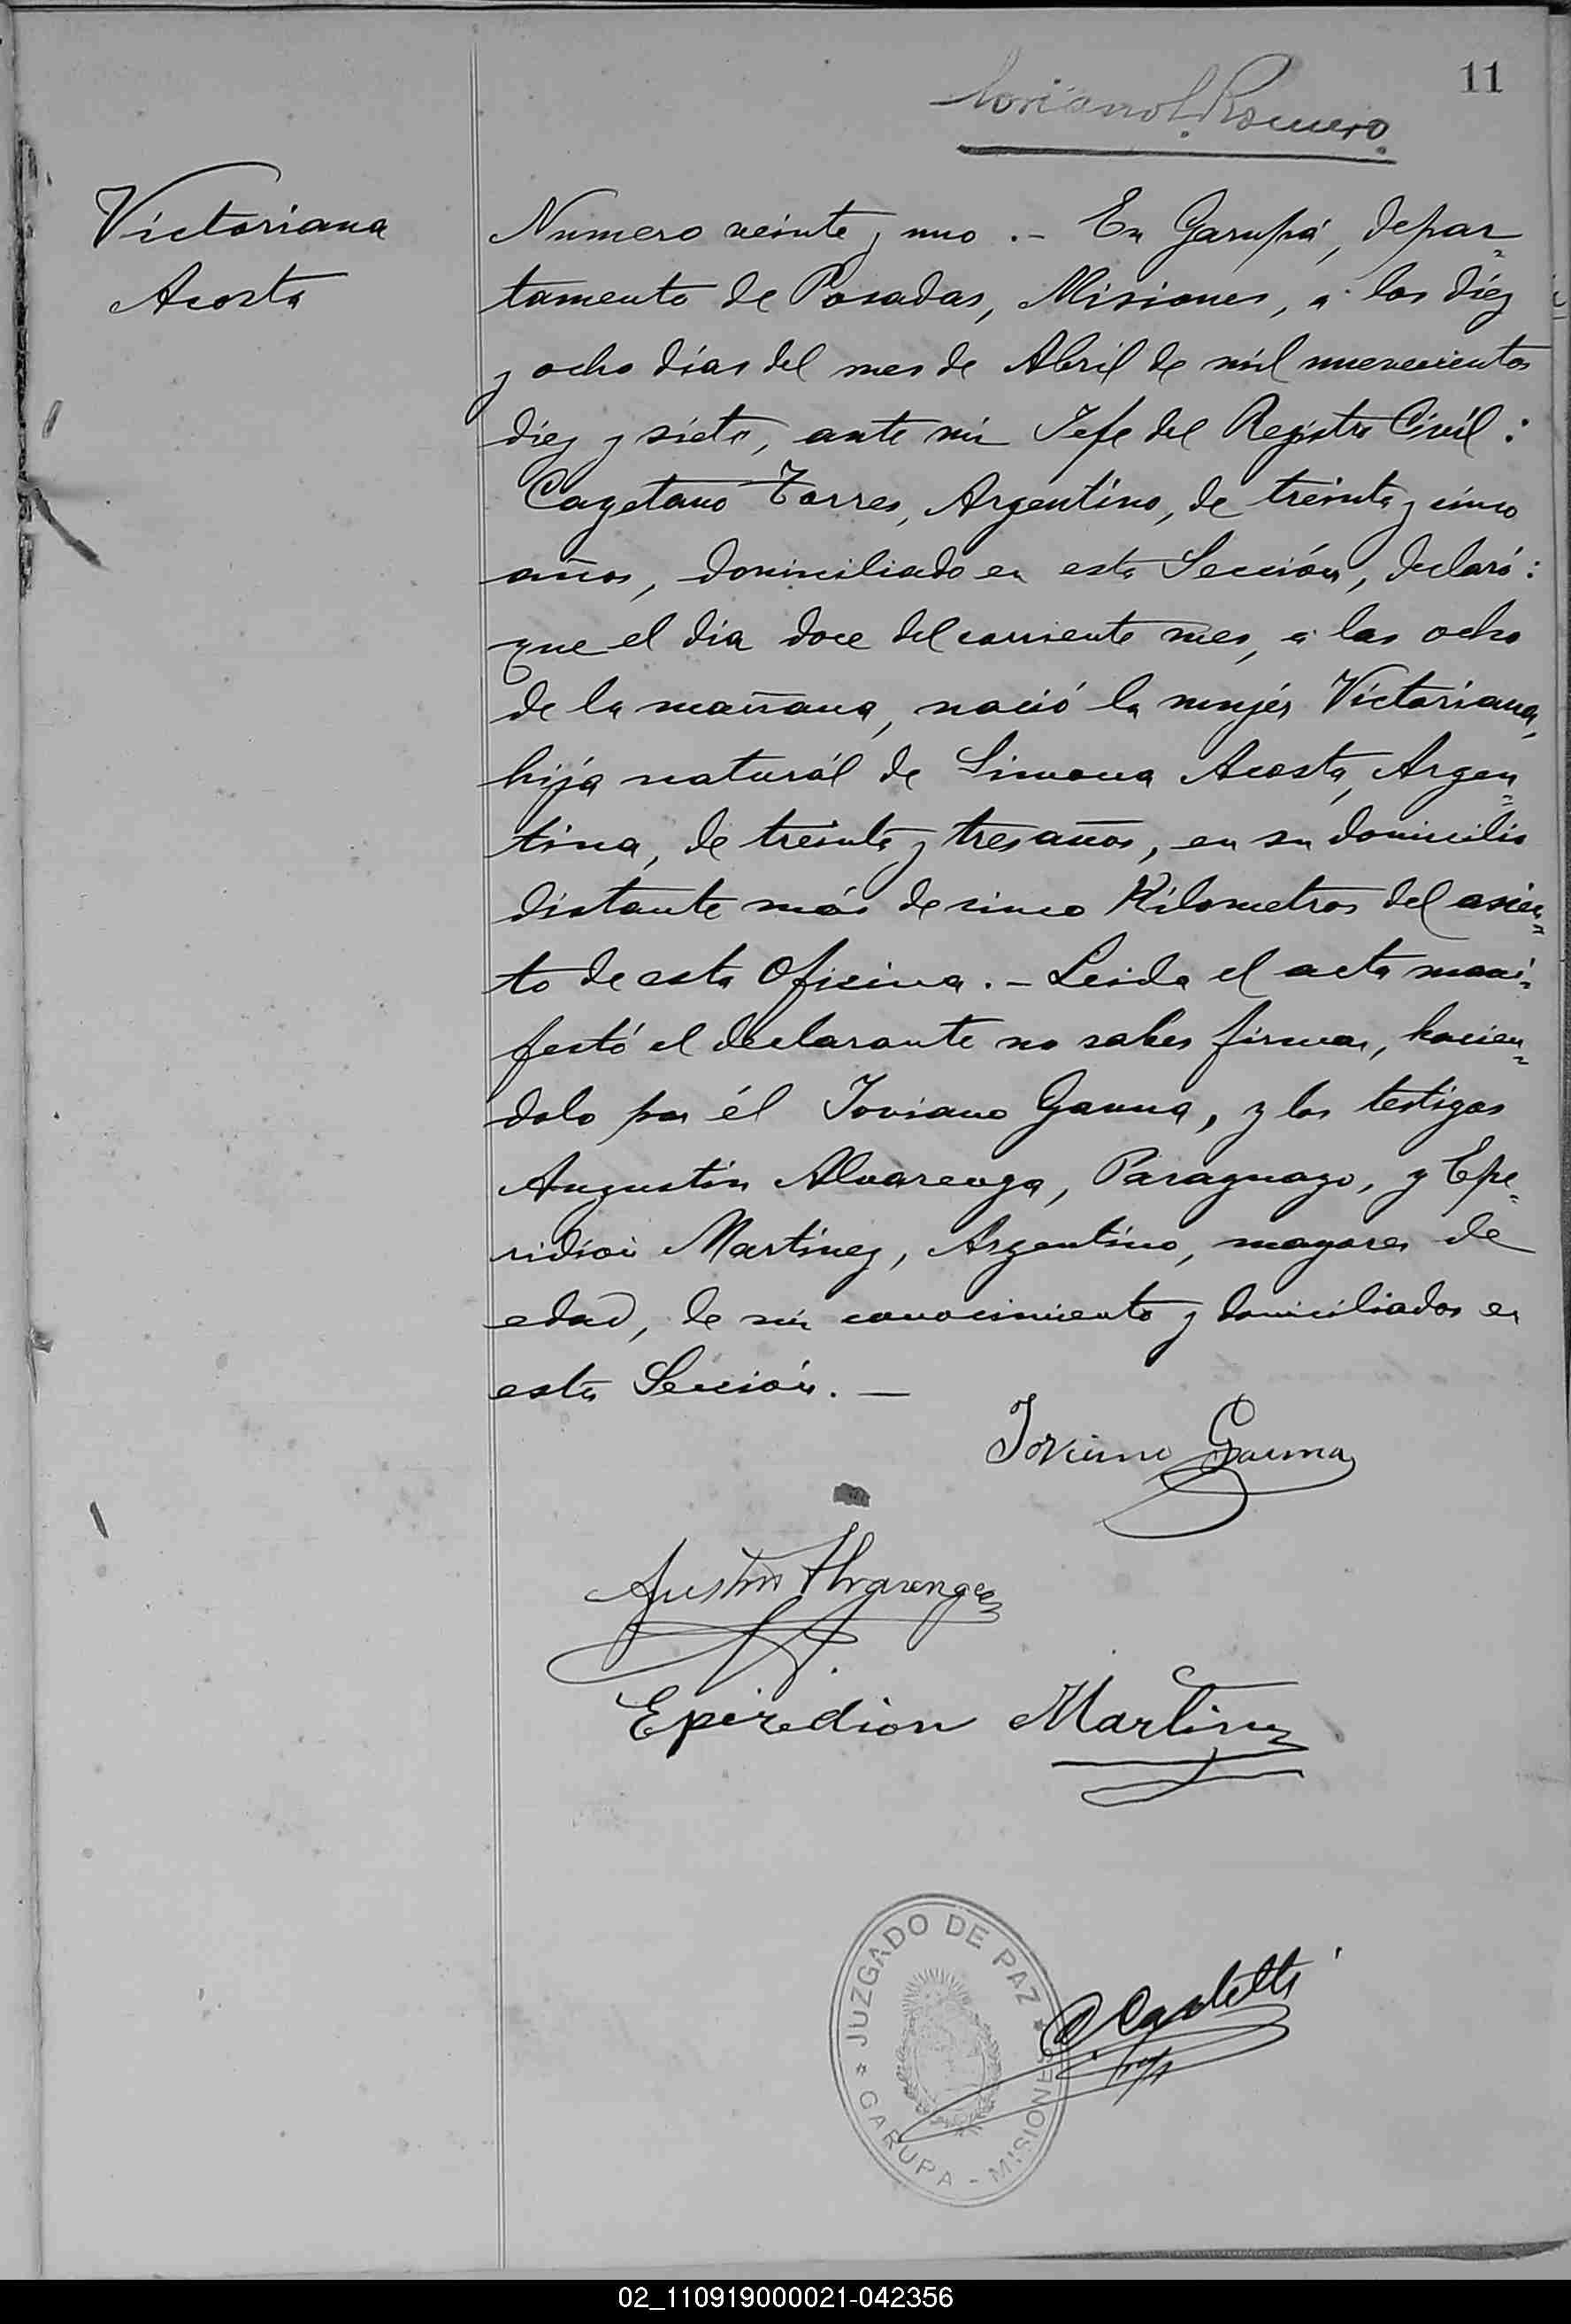 11
Romero
Victoriana
Acosta
Numero veinte y uno .- En Garupá, depar-
tamento de Posadas, Misiones, a los diez
y ocho días del mes de Abril de mil nuevecientos
diez y siete, ante mi Jefe del Registro Civíl :
Cayetano Torres, Argentino, de treinta y cinco
años, dominiliado en esta Sección, declaró :
que el dia doce del corriente mes, a las ocho
de la mañana, nació la mujér Victoriana,
hija naturál de Simona Acosta, Argen=
tina, de treinta y tres años, en su domicilio
distante más de cinco Kilometros del asien=
to de esta Oficina. - Leida el acta mani=
festó el declarante no saber firmar, hacien=
dolo por él Joviano Gauna, y los testigos
Augustin Alvarenga, Paraguayo, y Epe=
ridión Martínez, Argentino, mayores de
edad, de mi conocimiento y domiciliados en
esta Sección. —
Joviano Gauna
Austin Alvarenga
Eperedion Martinez
JUZGADO DE PAZ
GARUPA - MISIONES
02_110919000021-042356